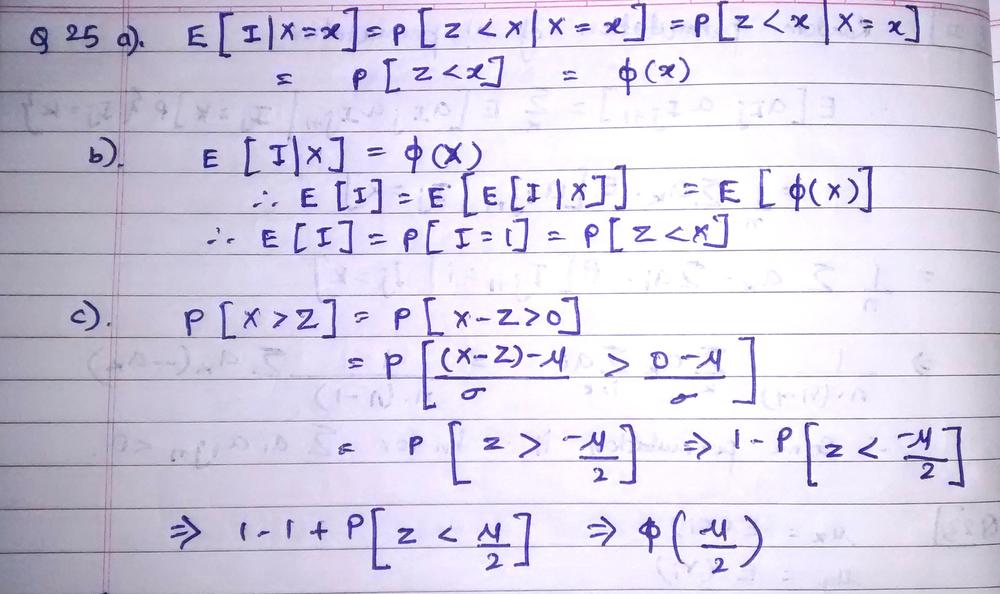 Q 25 a). E[I|X=x] = P[Z<X|X=x] = P[Z<x|X=x]
= P[Z<x] = ϕ(x)
b). E[I|X] = ϕ(X)
∴ E[I] = E[E[I|X]] = E[ϕ(X)]
∴ E[I] = P[I=1] = P[Z<X]
c). P[X>Z] = P[X-Z>0]
= P[((X-Z)-μ)/σ > (0-μ)/σ]
= P[Z > -μ/2] ⇒ 1-P[Z < -μ/2]
⇒ 1-1+P[Z < μ/2] ⇒ ϕ(μ/2)